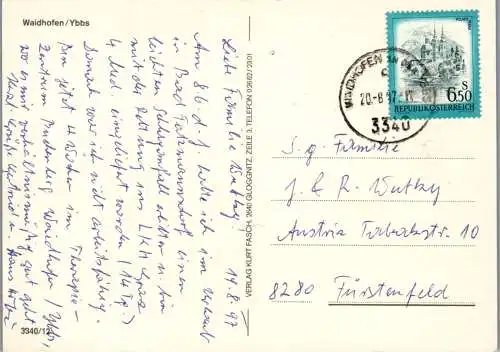 Waidhofen/Ybbs
19.8.97
Liebe Familie Wutky!
Am 8.6. d. J. hatte ich im Urlaub
in Bad Tatzmannsdorf einen
leichten Schlaganfall erlitten u. bin
mit der Rettung ins LKH Graz
eingeliefert worden (14 Tg.)
Danach war ich nicht arbeitsfähig.
Bin jetzt 4 Wochen im Therapie-
Zentrum Buchenberg Waidhofen/Ybbs,
wo es mir verhältnismäßig gut geht.
Hans
3340/12
VERLAG KURT FASCH, 2640 GLOGGNITZ, ZEILE 3, TELEFON 02662/
WAIDHOFEN AN DER
20.-8.97-11
3340
S
6.50
REPUBLIK ÖSTERREICH
S.g. Familie
J. & R. Wutky
Austria Tabakstr. 10
8280 Fürstenfeld